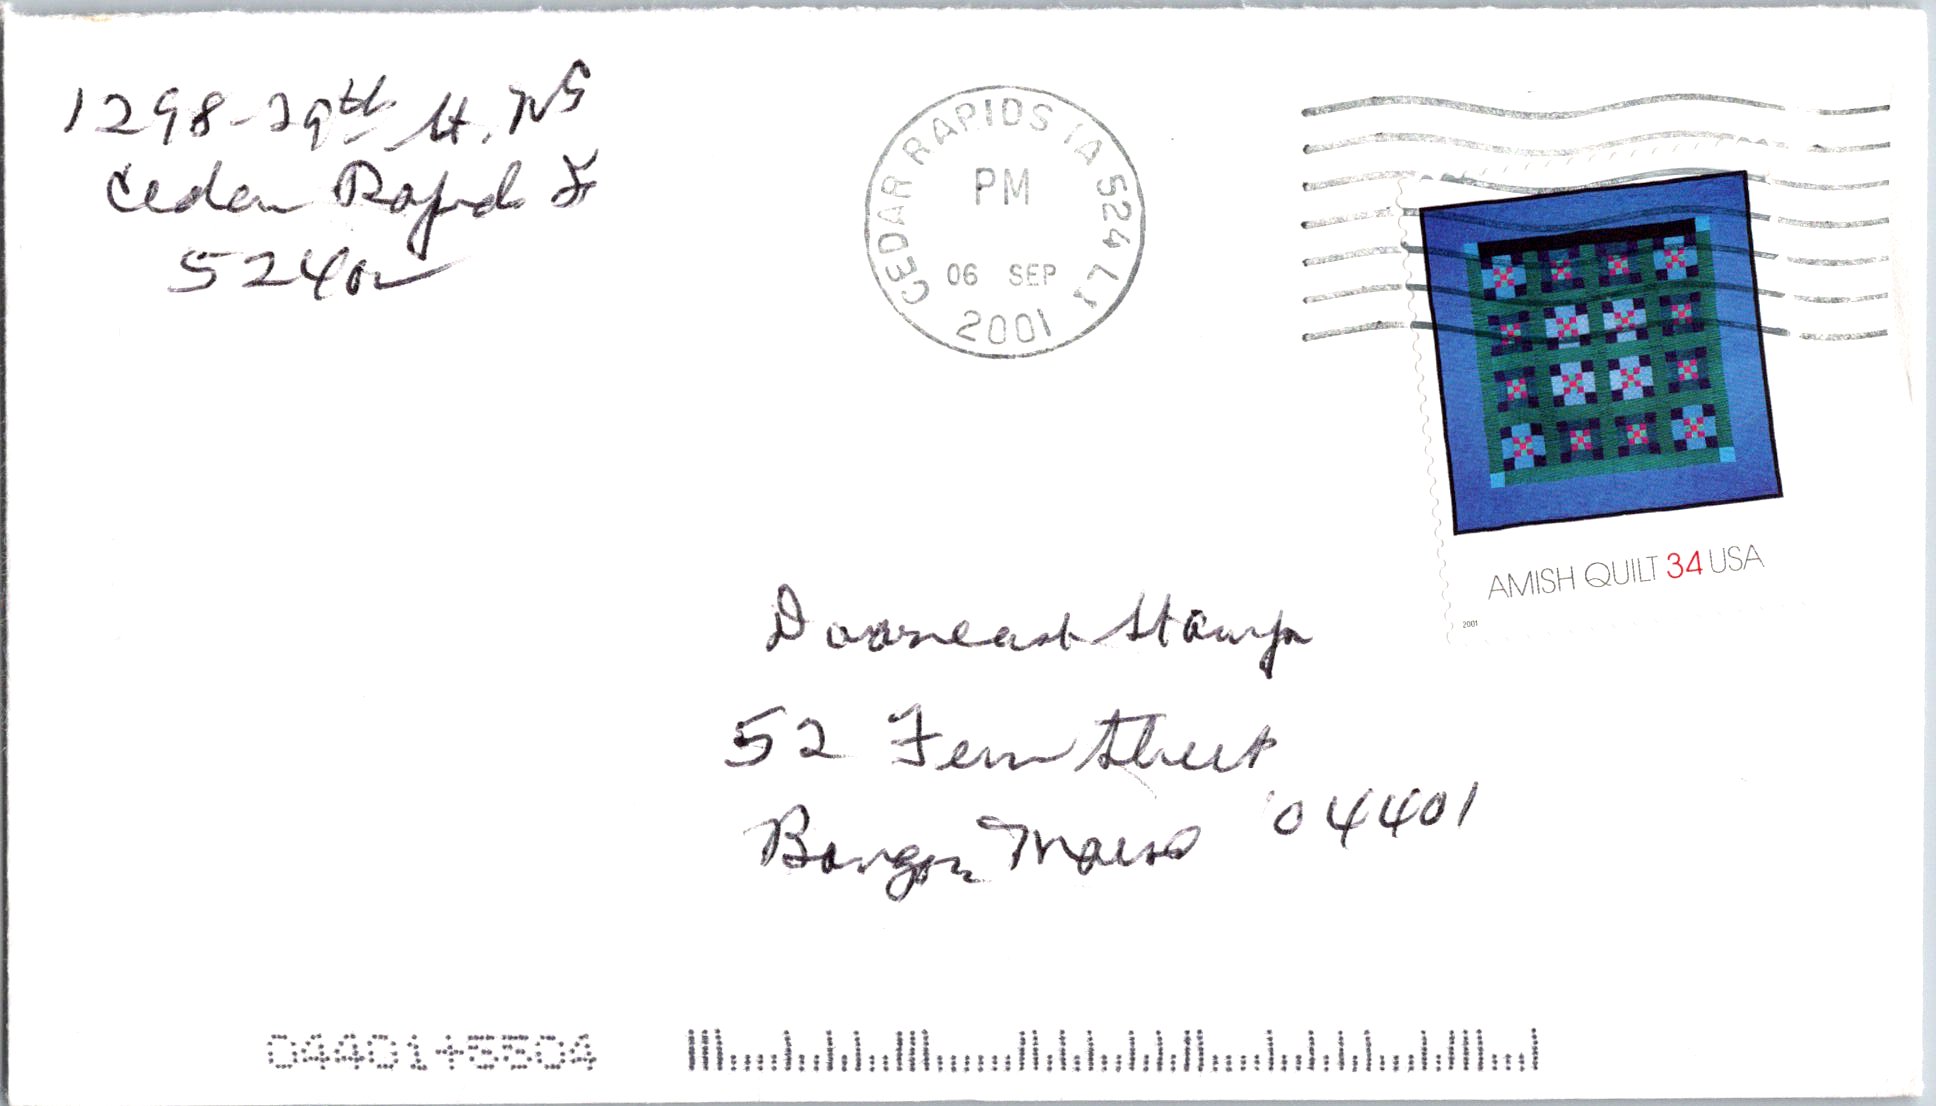 1298-29th St. NE
Cedar Rapids Ia
52402
CEDAR RAPIDS IA 524 L1
PM
06 SEP
2001
AMISH QUILT 34 USA
2001
Downeast Stamps
52 Fern Street
Bangor, Maine 04401
04401+5504